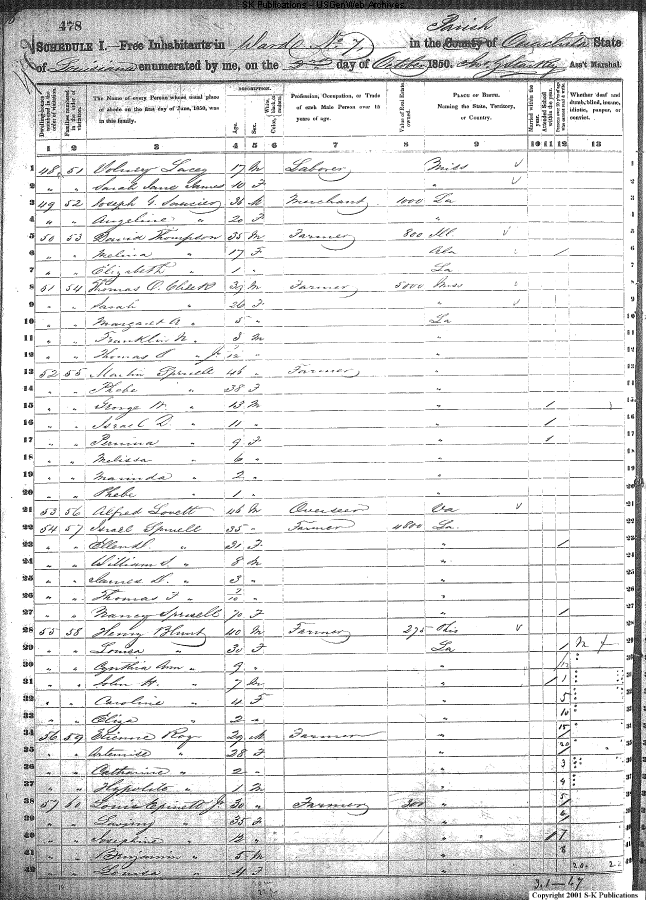 S-K Publications - USGenWeb Archives
478
Parish
SCHEDULE I.—Free Inhabitants in Ward No 7, in the County of Ouachita State
of Louisiana enumerated by me, on the 2nd day of October 1850. Ass't Marshal.
Dwelling-houses numbered in the order of visitation.
Families numbered in the order of visitation.
The Name of every Person whose usual place of abode on the first day of June, 1850, was in this family.
DESCRIPTION.
Age.
Sex.
Color, White, black, or mulatto.
Profession, Occupation, or Trade of each Male Person over 15 years of age.
Value of Real Estate owned.
PLACE OF BIRTH. Naming the State, Territory, or Country.
Married within the year.
Attended School within the year.
Persons over 20 y'rs of age who cannot read & write.
Whether deaf and dumb, blind, insane, idiotic, pauper, or convict.
1 2 3 4 5 6 7 8 9 10 11 12 13
1 48 51 Volney Lacey 17 M Laborer Miss
2 " " Sarah Jane James 10 F "
3 49 52 Joseph G. Saucier 36 M Merchant 1000 La
4 " " Angeline " 20 F "
5 50 53 David Thompson 35 M Farmer 800
6 " " Melina " 17 F Ala /
7 " " Elizabeth " 1 " La
8 51 54 Thomas O. 39 M Farmer 5000 Miss
9 " " Sarah " 26 F "
10 " " Margaret A " 5 " La
11 " " Franklin N. " 3 M "
12 " " Thomas O " Jr "
13 52 55 Martin Spruell 46 " Farmer "
14 " " Phebe " 38 F "
15 " " George W. " 13 M " /
16 " " Israel D. " 11 " " /
17 " " Permina " 9 F " /
18 " " Melissa " 6 " "
19 " " " 2 " "
20 " " Phebe " 1 " "
21 53 56 Alfred Lovett 46 M Overseer Va
22 54 57 Israel Spruell 35 " Farmer 4800 La
23 " " " 31 F " /
24 " " William S. " 8 M "
25 " " James D. " 3 " "
26 " " Thomas F " "
27 " " Nancy Spruell 70 F " /
28 55 58 Henry Blunt 40 M Farmer 275 Ohio
29 " " Louisa " 30 F La /
30 " " Cynthia Ann " 9 " "
31 " " John H. " 7 M " /
32 " " Caroline " 4 F "
33 " " Eliza " 2 " "
34 56 59 Etienne Roy 29 M Farmer "
35 " " Artemise " 28 F "
36 " " Catharine " 2 " "
37 " " Hypolite " 1 M "
38 57 60 Louis Jr 30 " Farmer 300 "
39 " " " 35 F "
40 " " Josephine " 12 " " /
41 " " Benjamin " 5 M "
42 " " Louisa " 4 F "
Copyright 2001 S-K Publications